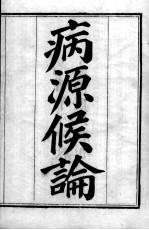 病源候論